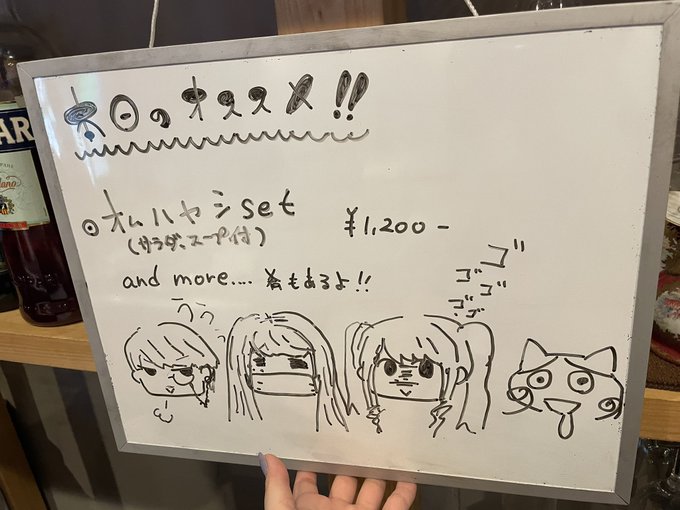 本日のオススメ!!
◎オムハヤシset ¥1,200-
(サラダ、スープ付)
and more.... もあるよ!!
ゴゴゴゴゴ
うう
AR